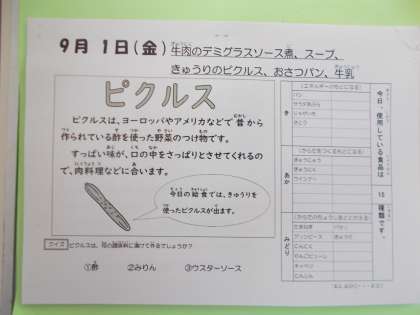 9月 1日(金) 牛肉のデミグラスソース煮、スープ、
きゅうりのピクルス、おさつパン、牛乳
ピクルス
ピクルスは、ヨーロッパやアメリカなどで昔から
作られている酢を使った野菜のつけ物です。
すっぱい味が、口の中をさっぱりとさせてくれるの
で、肉料理などに合います。
今日の給食では、きゅうりを
使ったピクルスが出ます。
クイズ ピクルスは、何の調味料に漬けて作るでしょうか?
①酢 ②みりん ③ウスターソース
今日、使用している食品は
種類です。
き
パン
じゃがいも
さとう
あか
ぎゅうにゅう
ぎゅうにく
ウインナー
みどり
たまねぎ
パセリ
グリンピース
きゅうり
にんにく
キャベツ
にんじん